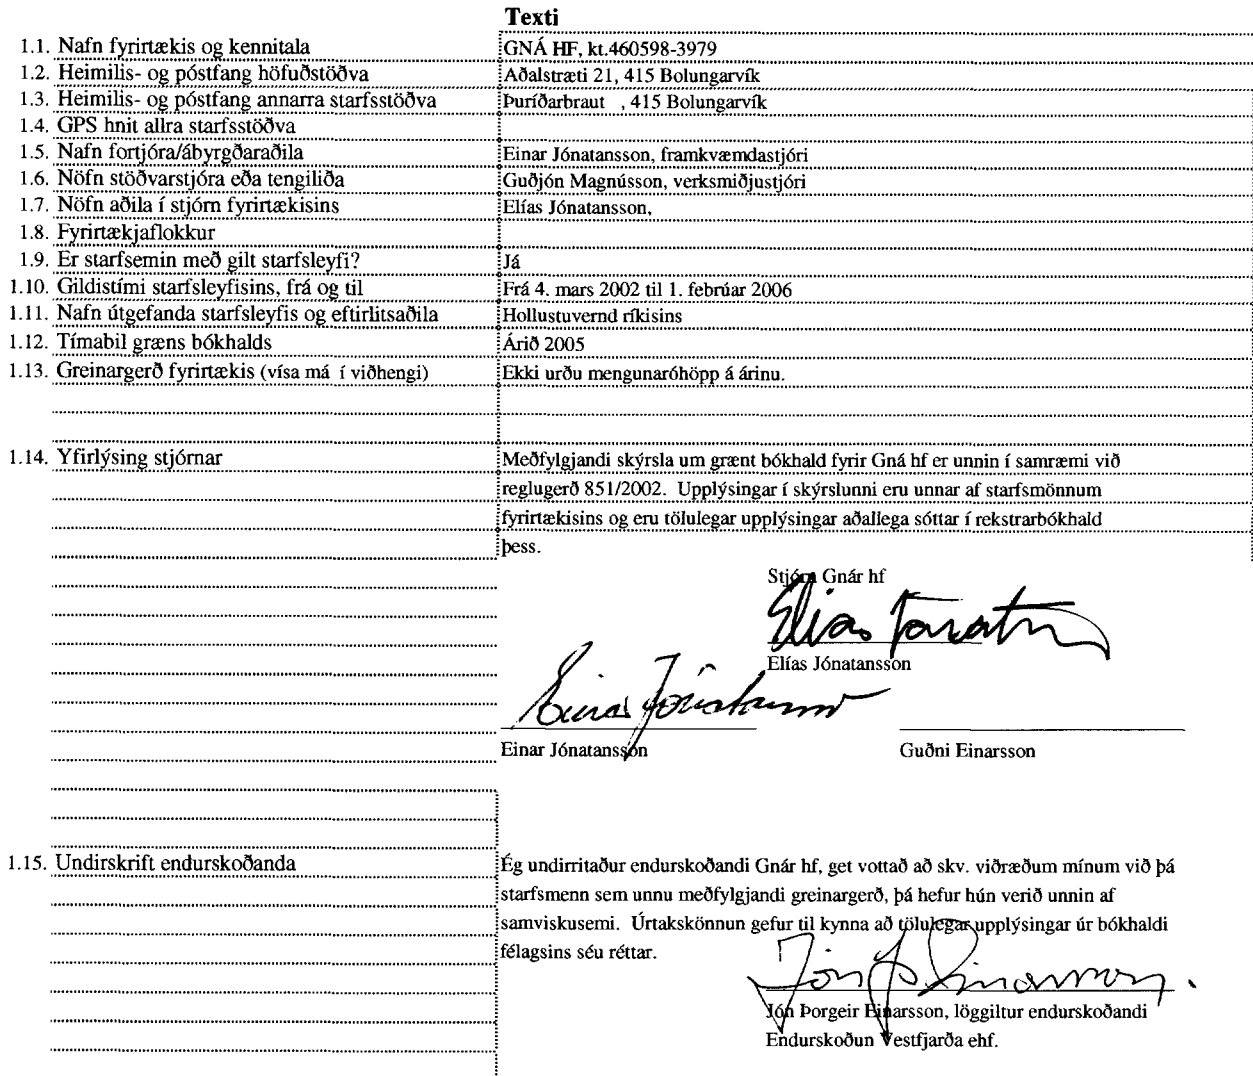 Texti
1.1. Nafn fyrirtækis og kennitala GNÁ HF, kt.460598-3979
1.2. Heimilis- og póstfang höfuðstöðva Aðalstræti 21, 415 Bolungarvík
1.3. Heimilis- og póstfang annarra starfsstöðva Þuríðarbraut , 415 Bolungarvík
1.4. GPS hnit allra starfsstöðva
1.5. Nafn fortjóra/ábyrgðaraðila Einar Jónatansson, framkvæmdastjóri
1.6. Nöfn stöðvarstjóra eða tengiliða Guðjón Magnússon, verksmiðjustjóri
1.7. Nöfn aðila í stjórn fyrirtækisins Elías Jónatansson,
1.8. Fyrirtækjaflokkur
1.9. Er starfsemin með gilt starfsleyfi? Já
1.10. Gildistími starfsleyfisins, frá og til Frá 4. mars 2002 til 1. febrúar 2006
1.11. Nafn útgefanda starfsleyfis og eftirlitsaðila Hollustuvernd ríkisins
1.12. Tímabil græns bókhalds Árið 2005
1.13. Greinargerð fyrirtækis (vísa má í viðhengi) Ekki urðu mengunaróhöpp á árinu.
1.14. Yfirlýsing stjórnar Meðfylgjandi skýrsla um grænt bókhald fyrir Gná hf er unnin í samræmi við
reglugerð 851/2002. Upplýsingar í skýrslunni eru unnar af starfsmönnum
fyrirtækisins og eru tölulegar upplýsingar aðallega sóttar í rekstrarbókhald
þess.
Stjórn Gnár hf
Elías Jónatansson
Einar Jónatansson Guðni Einarsson
1.15. Undirskrift endurskoðanda Ég undirritaður endurskoðandi Gnár hf, get vottað að skv. viðræðum mínum við þá
starfsmenn sem unnu meðfylgjandi greinargerð, þá hefur hún verið unnin af
samviskusemi. Úrtakskönnun gefur til kynna að tölulegar upplýsingar úr bókhaldi
félagsins séu réttar.
Jón Þorgeir Einarsson, löggiltur endurskoðandi
Endurskoðun Vestfjarða ehf.